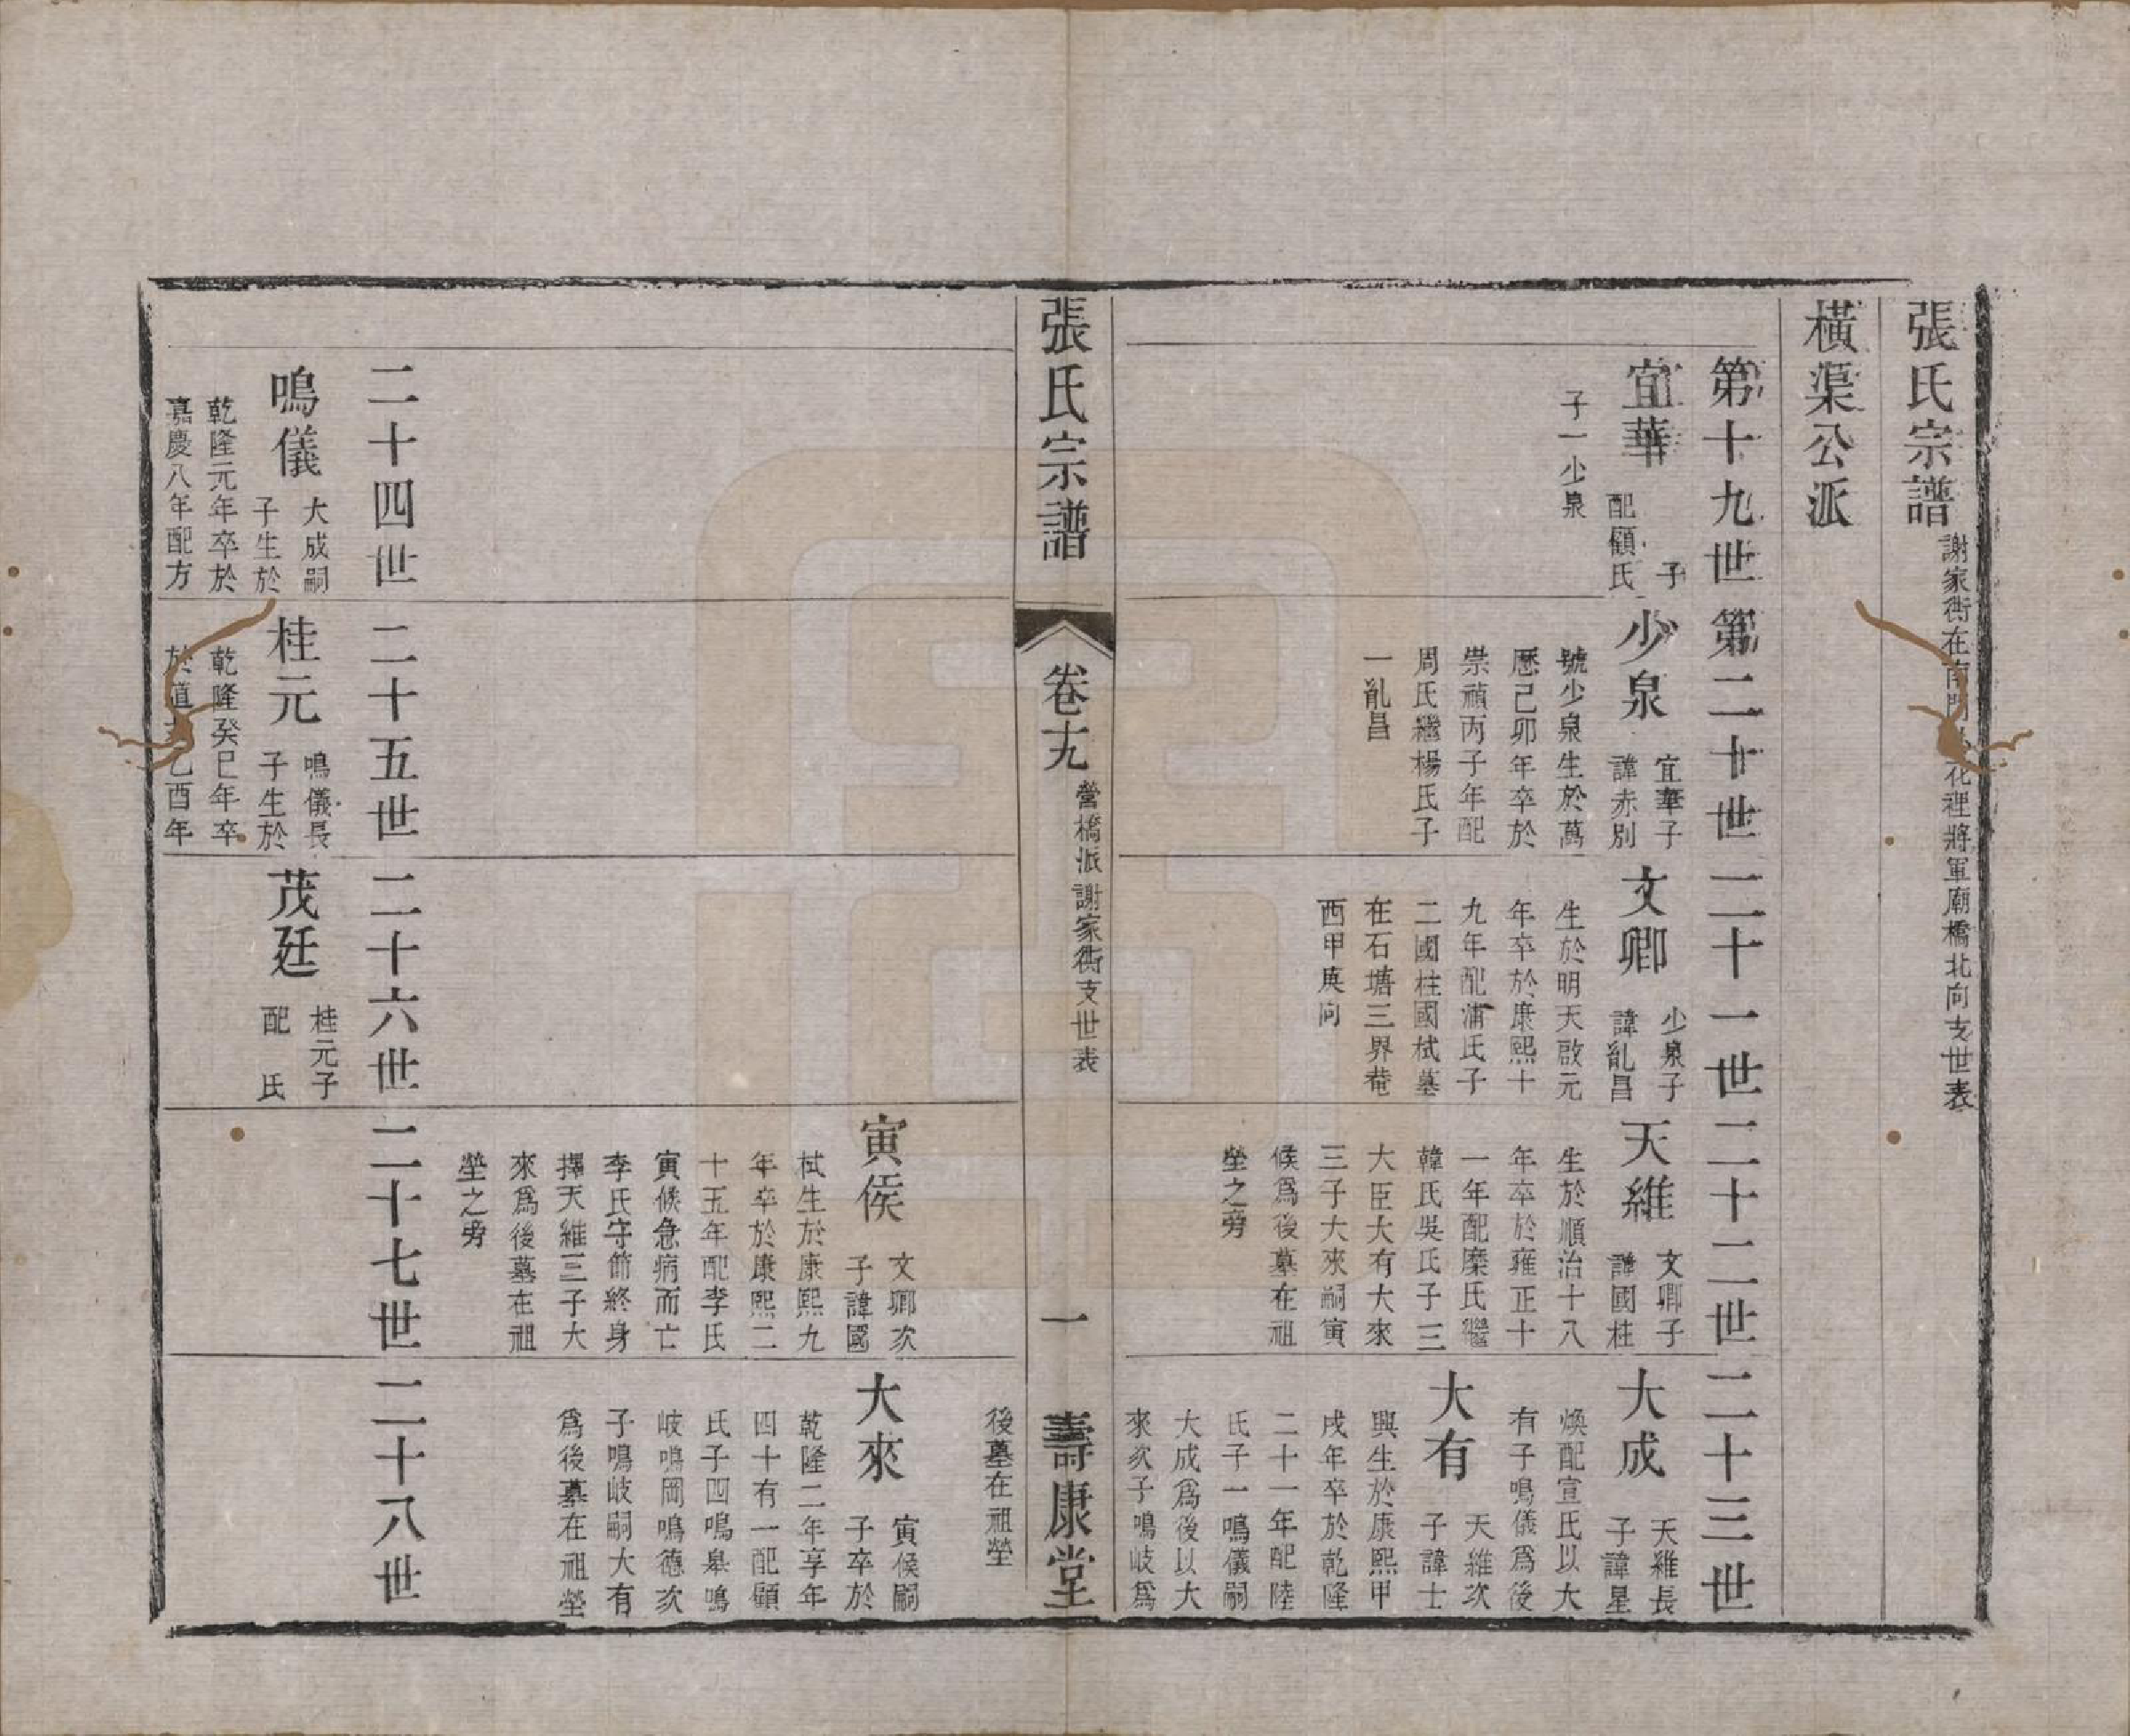 張氏宗譜 謝家衖在南門 花裡將軍廟橋北向支世表
橫渠公派
第十九世
第二十世
二十一世
二十二世
二十三世
宜華 子
配顧氏
子一少泉
少泉 宜華子
諱赤別
號少泉生於萬
歷己卯年卒於
崇禎丙子年配
周氏繼楊氏子
一胤昌
文卿 少泉子
諱胤昌
生於明天啟元
年卒於康熙十
九年配浦氏子
二國柱國栻墓
在石塘三界菴
西甲庚向
天維 文卿子
諱國柱
生於順治十八
年卒於雍正十
一年配糜氏繼
韓氏吳氏子三
大臣大有大來
三子大來嗣寅
候爲後墓在祖
塋之旁
大成 天維長
子諱星
煥配宣氏以大
有子鳴儀爲後
大有 天維次
子諱士
興生於康熙甲
戌年卒於乾隆
二十一年配陸
氏子一鳴儀嗣
大成爲後以大
來次子鳴岐爲
張氏宗譜 卷十九 營橋派謝家衖支世表 一 壽康堂
後墓在祖塋
寅侯 文卿次
子諱國
栻生於康熙九
年卒於康熙二
十五年配李氏
寅候急病而亡
李氏守節終身
擇天維三子大
來爲後墓在祖
塋之旁
大來 寅候嗣
子卒於
乾隆二年享年
四十有一配顧
氏子四鳴皋鳴
岐鳴岡鳴德次
子鳴岐嗣大有
爲後墓在祖塋
二十四世
二十五世
二十六世
二十七世
二十八世
鳴儀 大成嗣
子生於
乾隆元年卒於
嘉慶八年配方
桂元 鳴儀長
子生於
乾隆癸巳年卒
於道 乙酉年
茂廷 桂元子
配 氏